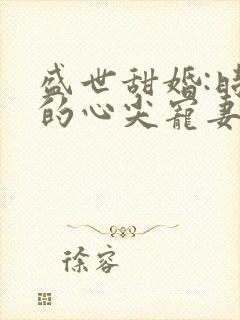 盛世甜婚:
的心尖宠妻
徐容